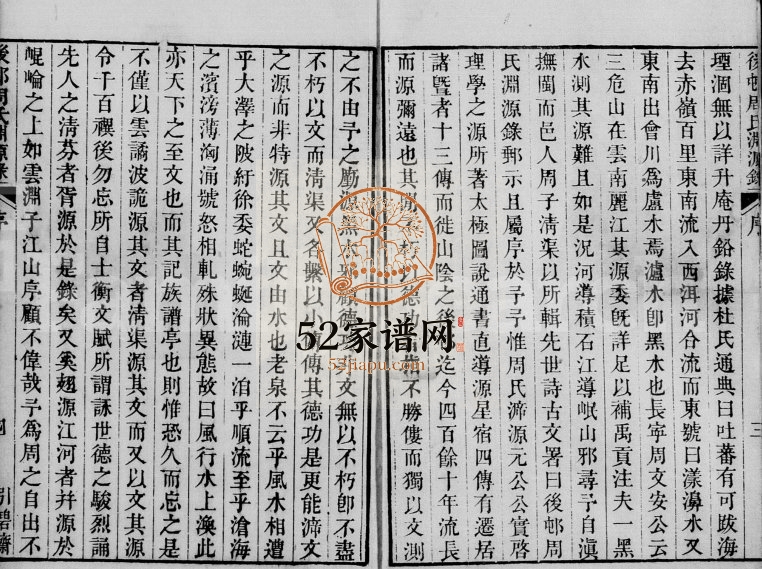 後邨周氏淵源錄 序 三
堙涸無以詳升庵丹鉛錄據杜氏通典曰吐蕃有可跋海
去赤嶺百里東南流入西洱河合流而東號曰漾濞水又
東南出會川爲瀘水焉瀘水卽黑水也長寧周文安公云
三危山在雲南麗江其源委旣詳足以補禹貢注夫一黑
水測其源難且如是況河導積石江導岷山邪尋予自滇
撫閩而邑人周子清渠以所輯先世詩古文署曰後邨周
氏淵源錄郵示且屬序於予予惟周氏渧源元公公實啓
理學之源所著太極圖說通書直導源星宿四傳有遷居
諸曁者十三傳而徙山陰之後 迄今四百餘十年流長
而源彌遠也其 不朽 德功 不勝僂而獨以文測
之不由予之勵源黑水 德 文無以不朽卽不盡
不朽以文而清渠又名繫以小 傳其德功是更能渧文
之源而非特源其文且文由水也老泉不云乎風水相遭
乎大澤之陂紆徐委蛇蜿蜒淪漣一洎乎順流至乎滄海
之濱滂薄洶涌號怒相軋殊狀異態故曰風行水上渙此
亦天下之至文也而其記族譜亭也則惟恐久而忘之是
不僅以雲譎波詭源其文者清渠源其文而又以文其源
令千百禩後勿忘所自士衡文賦所謂詠世德之駿烈誦
先人之清芬者胥源於是錄矣又奚翅源江河者幷源於
崐崘之上如雲淵子江山序顧不偉哉予爲周之自出不
後邨周氏淵源錄 序 四 引碧齋
52家谱网
52jiapu.com